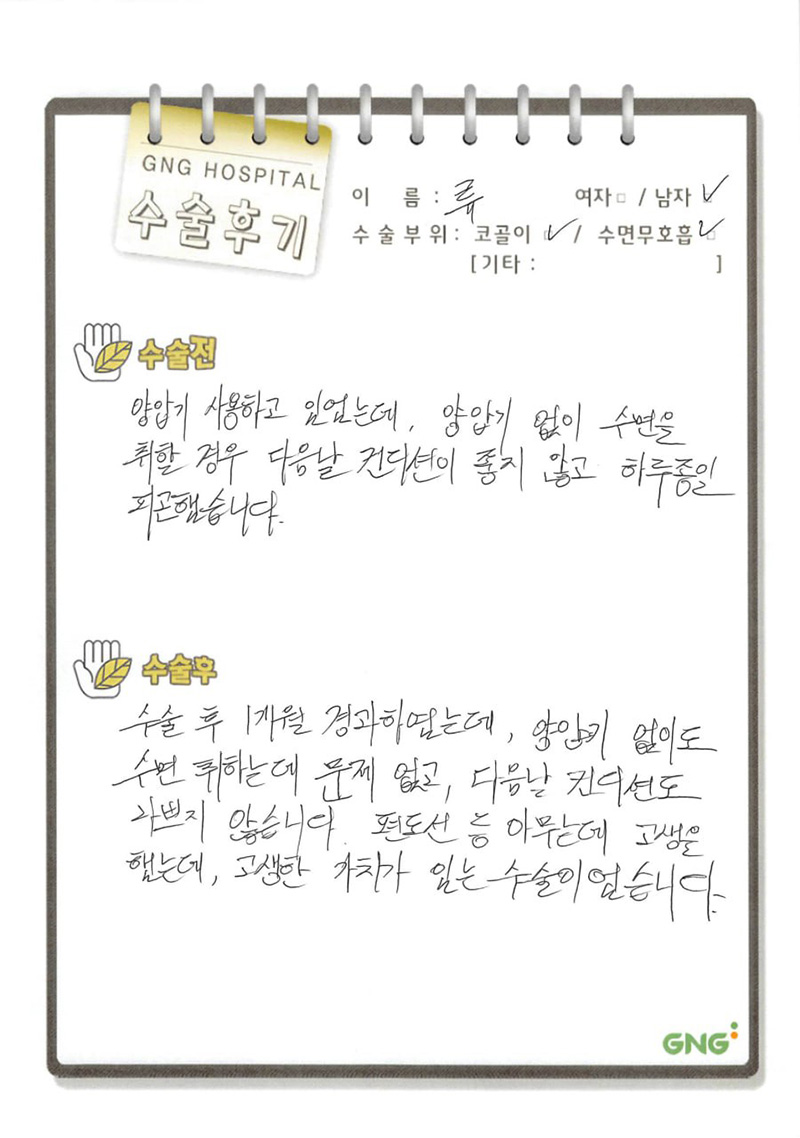 GNG HOSPITAL
수술후기
이 름 : 류 여자□ / 남자 ✓
수 술 부 위 : 코골이 ✓ / 수면무호흡 ✓
[기타 : ]
수술전
양압기 사용하고 있었는데, 양압기 없이 수면을
취할 경우 다음날 컨디션이 좋지 않고 하루종일
피곤했습니다.
수술후
수술 후 1개월 경과하였는데, 양압기 없이도
수면 취하는데 문제 없고, 다음날 컨디션도
나쁘지 않습니다. 편도선 등 아무는데 고생을
했는데, 고생한 가치가 있는 수술이었습니다.
GNG